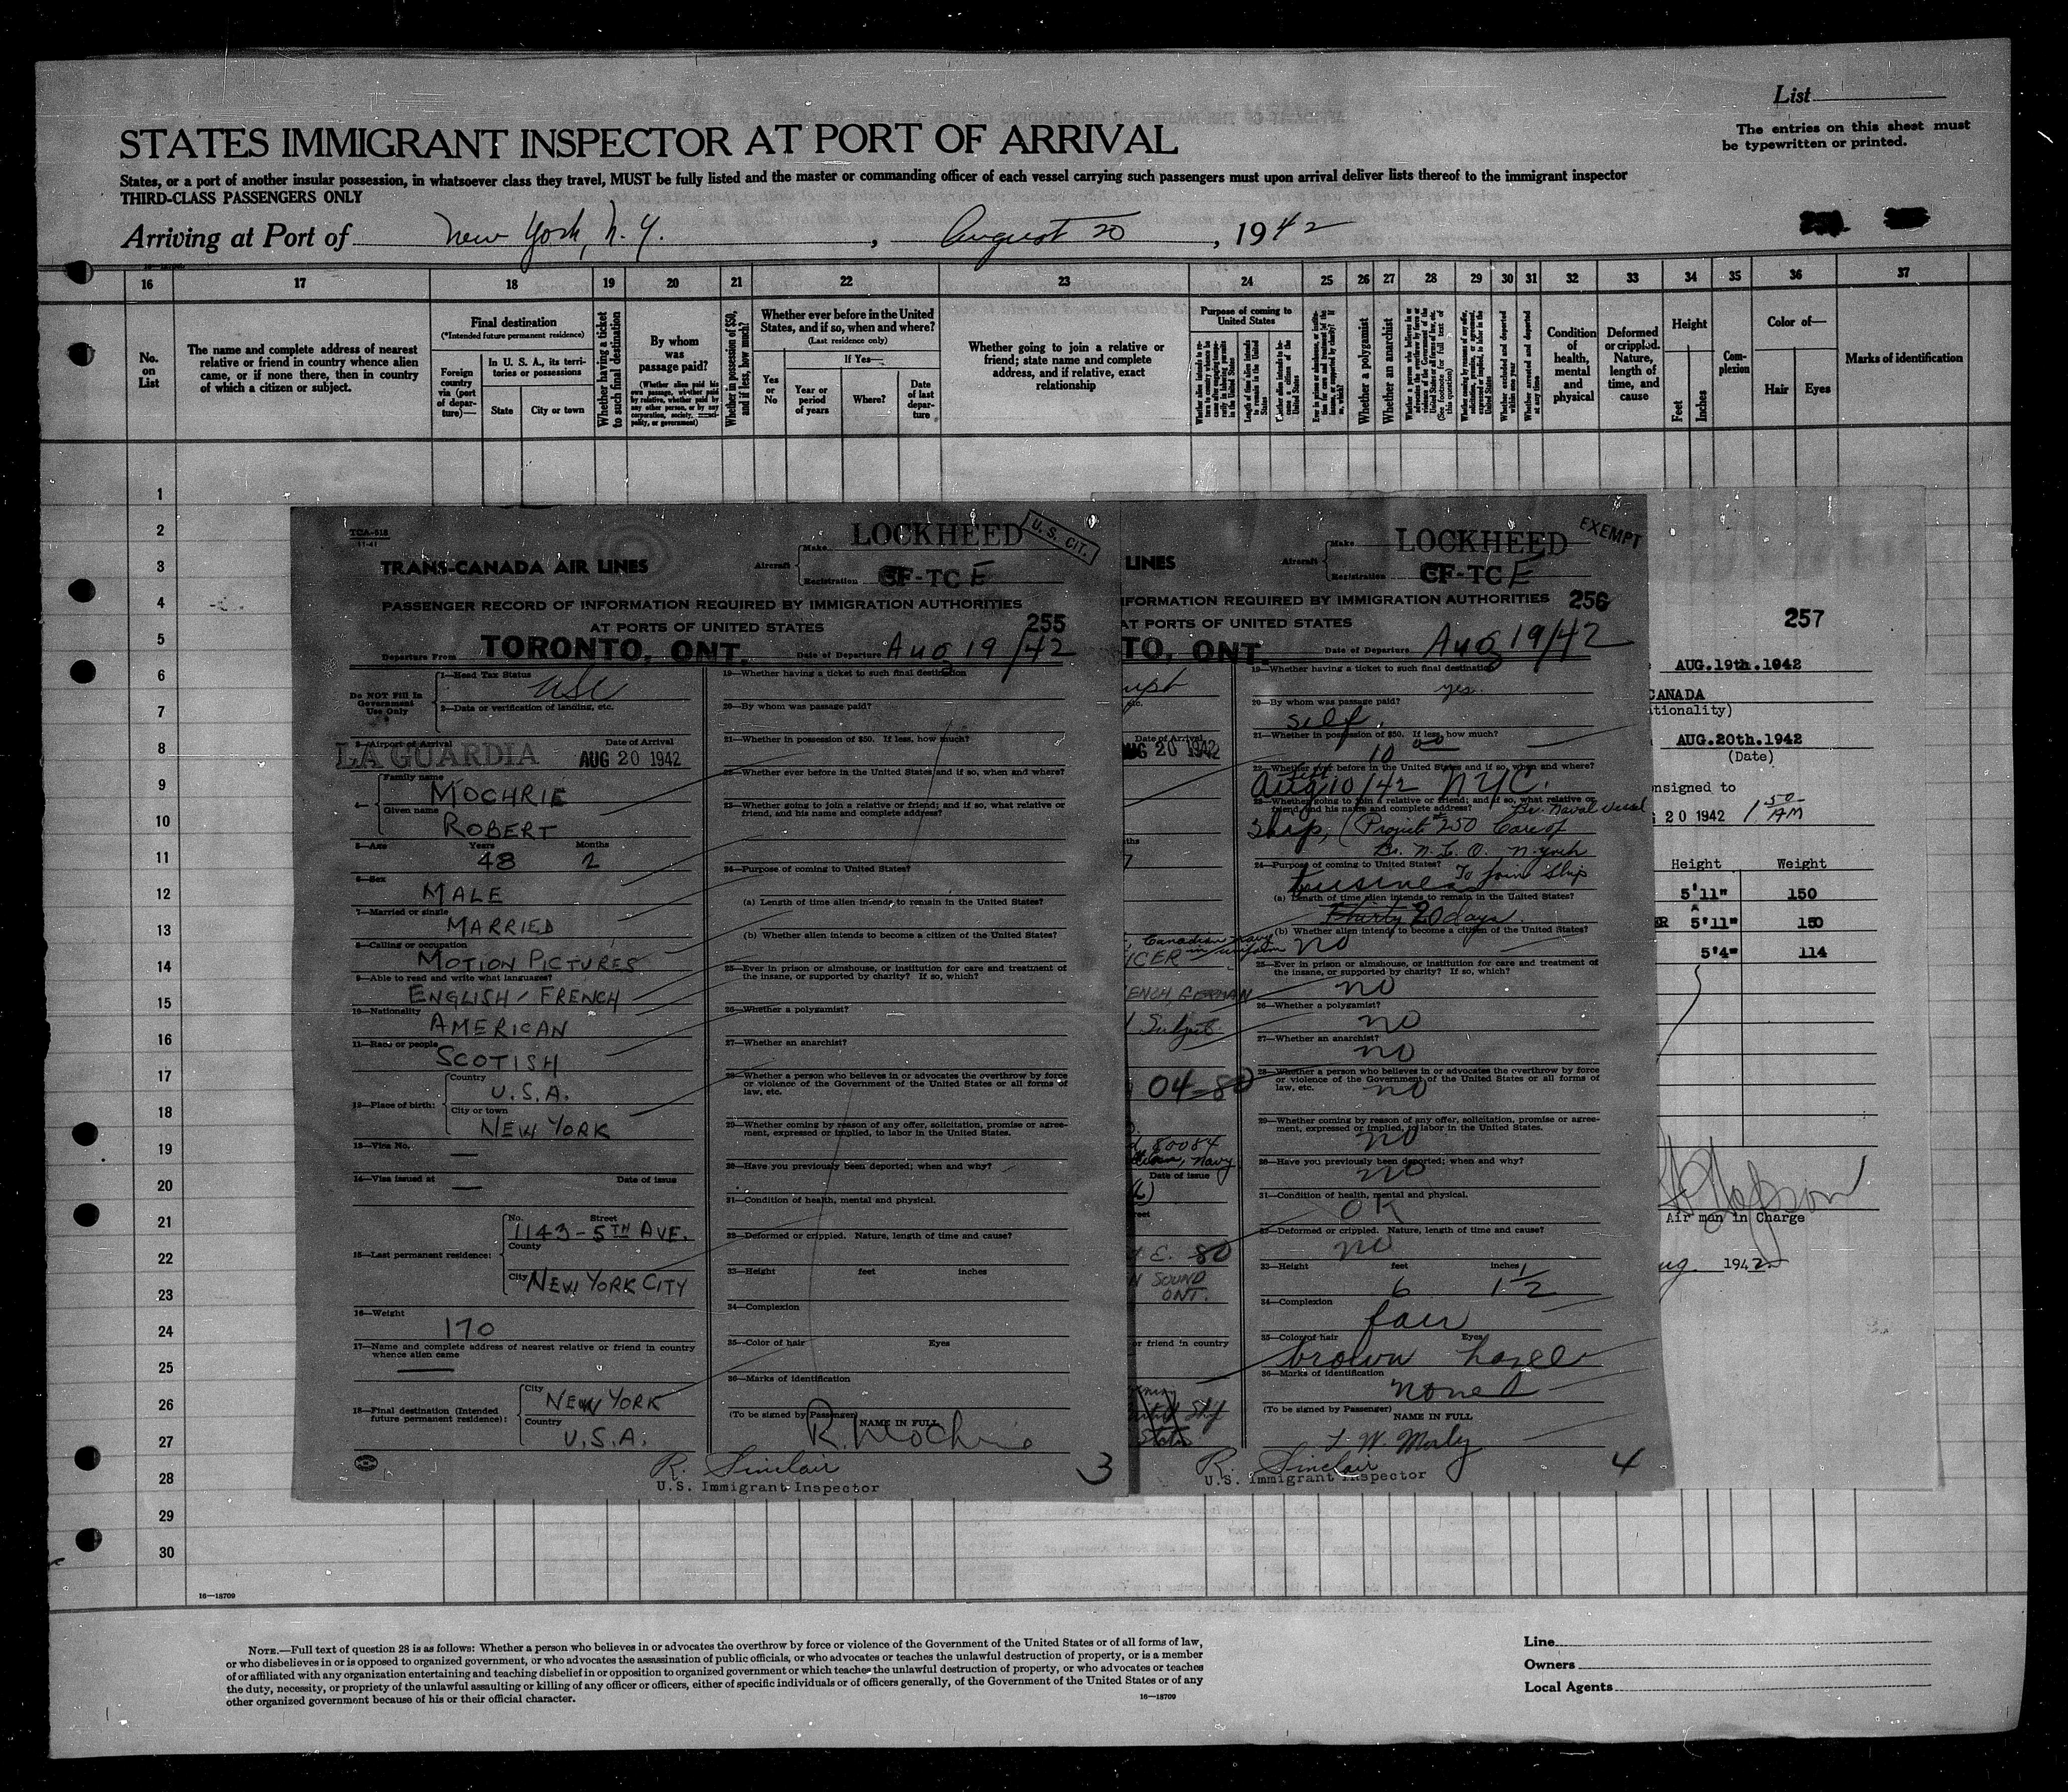 List
The entries on this sheet must
be typewritten or printed.
STATES IMMIGRANT INSPECTOR AT PORT OF ARRIVAL
States, or a port of another insular possession, in whatsoever class they travel, MUST be fully listed and the master or commanding officer of each vessel carrying such passengers must upon arrival deliver lists thereof to the immigrant inspector
THIRD-CLASS PASSENGERS ONLY
Arriving at Port of New York, N.Y. , August 20 , 1942
16 17 18 19 20 21 22 23 24 25 26 27 28 29 30 31 32 33 34 35 36 37
No. on List
The name and complete address of nearest
relative or friend in country whence alien
came, or if none there, then in country
of which a citizen or subject.
Final destination
(*Intended future permanent residence)
Foreign country via (port of departure)—
In U. S. A., its territories or possessions
State
City or town
Whether having a ticket to such final destination
By whom was passage paid?
(Whether alien paid his own passage, whether paid by relative, whether paid by any other person, or by any corporation, society, municipality, or government)
Whether in possession of $50, and if less, how much?
Whether ever before in the United
States, and if so, when and where?
(Last residence only)
Yes or No
If Yes—
Year or period of years
Where?
Date of last departure
Whether going to join a relative or
friend; state name and complete
address, and if relative, exact
relationship
Purpose of coming to United States
Whether a polygamist
Whether an anarchist
Condition of health, mental and physical
Deformed or crippled. Nature, length of time, and cause
Height
Feet
Inches
Complexion
Color of—
Hair
Eyes
Marks of identification
1
2
3
4
5
6
7
8
9
10
11
12
13
14
15
16
17
18
19
20
21
22
23
24
25
26
27
28
29
30
TCA-518
11-41
TRANS-CANADA AIR LINES
Aircraft
Make LOCKHEED
Registration CF-TC E
U. S. CIT.
PASSENGER RECORD OF INFORMATION REQUIRED BY IMMIGRATION AUTHORITIES
AT PORTS OF UNITED STATES
255
Departure From TORONTO, ONT. Date of Departure Aug 19/42
Do NOT Fill In
Government
Use Only
1—Head Tax Status
USC
2—Data or verification of landing, etc.
3—Airport of Arrival Date of Arrival
LA GUARDIA AUG 20 1942
4—
Family name
MOCHRIE
Given name
ROBERT
5—Age Years Months
48 2
6—Sex
MALE
7—Married or single
MARRIED
8—Calling or occupation
MOTION PICTURES
9—Able to read and write what languages?
ENGLISH / FRENCH
10—Nationality
AMERICAN
11—Race or people
SCOTISH
12—Place of birth:
Country
U.S.A.
City or town
NEW YORK
13—Visa No.
—
14—Visa issued at Date of issue
—
15—Last permanent residence:
No. Street
1143-5TH AVE.
County
City NEW YORK CITY
16—Weight
170
17—Name and complete address of nearest relative or friend in country
whence alien came
18—Final destination (Intended
future permanent residence):
City
NEW YORK
Country
U.S.A.
19—Whether having a ticket to such final destination
20—By whom was passage paid?
21—Whether in possession of $50. If less, how much?
22—Whether ever before in the United States and if so, when and where?
23—Whether going to join a relative or friend; and if so, what relative or
friend, and his name and complete address?
24—Purpose of coming to United States?
(a) Length of time alien intends to remain in the United States?
(b) Whether alien intends to become a citizen of the United States?
25—Ever in prison or almshouse, or institution for care and treatment of
the insane, or supported by charity? If so, which?
26—Whether a polygamist?
27—Whether an anarchist?
28—Whether a person who believes in or advocates the overthrow by force
or violence of the Government of the United States or all forms of
law, etc.
29—Whether coming by reason of any offer, solicitation, promise or agree-
ment, expressed or implied, to labor in the United States.
30—Have you previously been deported; when and why?
31—Condition of health, mental and physical.
32—Deformed or crippled. Nature, length of time and cause?
33—Height feet inches
34—Complexion
35—Color of hair Eyes
36—Marks of identification
(To be signed by Passenger) NAME IN FULL
R. Mochrie
R. Sinclair
U.S. Immigrant Inspector
3
LINES
Aircraft
Make LOCKHEED
Registration CF-TC E
EXEMPT
INFORMATION REQUIRED BY IMMIGRATION AUTHORITIES 256
AT PORTS OF UNITED STATES
TO, ONT. Date of Departure Aug 19/42
etc.
Date of Arrival
AUG 20 1942
Canadian Navy
ICER in uniform
ENCH, GERMAN
Subject
04-80
80084
Navy
Date of issue
E. 80
N SOUND
ONT.
or friend in country
19—Whether having a ticket to such final destination
yes.
20—By whom was passage paid?
self.
21—Whether in possession of $50. If less, how much?
10 00
22—Whether ever before in the United States and if so, when and where?
Aug 10/42 NYC.
23—Whether going to join a relative or friend; and if so, what relative or
friend, and his name and complete address? Br. Naval Vessel
Ship, (Project #250 Care of
Br. N. L. O. N. York
24—Purpose of coming to United States? To join Ship
business
(a) Length of time alien intends to remain in the United States?
Thirty 20 days.
(b) Whether alien intends to become a citizen of the United States?
no
25—Ever in prison or almshouse, or institution for care and treatment of
the insane, or supported by charity? If so, which?
no
26—Whether a polygamist?
no
27—Whether an anarchist?
no
28—Whether a person who believes in or advocates the overthrow by force
or violence of the Government of the United States or all forms of
law, etc.
no
29—Whether coming by reason of any offer, solicitation, promise or agree-
ment, expressed or implied, to labor in the United States.
no
30—Have you previously been deported; when and why?
no
31—Condition of health, mental and physical.
OK
32—Deformed or crippled. Nature, length of time and cause?
no
33—Height feet inches
6 1 1/2
34—Complexion
fair
35—Color of hair Eyes
brown hazel
36—Marks of identification
none
(To be signed by Passenger)
NAME IN FULL
R. Sinclair
U.S. Immigrant Inspector
4
257
AUG.19th.1942
CANADA
tionality)
AUG.20th.1942
(Date)
nsigned to
20 1942 1 50 AM
Height Weight
5'11" 150
ER 5'11" 150
5'4" 114
Air man in Charge
ug 1942
16—18709
NOTE.—Full text of question 28 is as follows: Whether a person who believes in or advocates the overthrow by force or violence of the Government of the United States or of all forms of law,
or who disbelieves in or is opposed to organized government, or who advocates the assassination of public officials, or who advocates or teaches the unlawful destruction of property, or is a member
of or affiliated with any organization entertaining and teaching disbelief in or opposition to organized government or which teaches the unlawful destruction of property, or who advocates or teaches
the duty, necessity, or propriety of the unlawful assaulting or killing of any officer or officers, either of specific individuals or of officers generally, of the Government of the United States or of any
other organized government because of his or their official character.
16—18709
Line
Owners
Local Agents